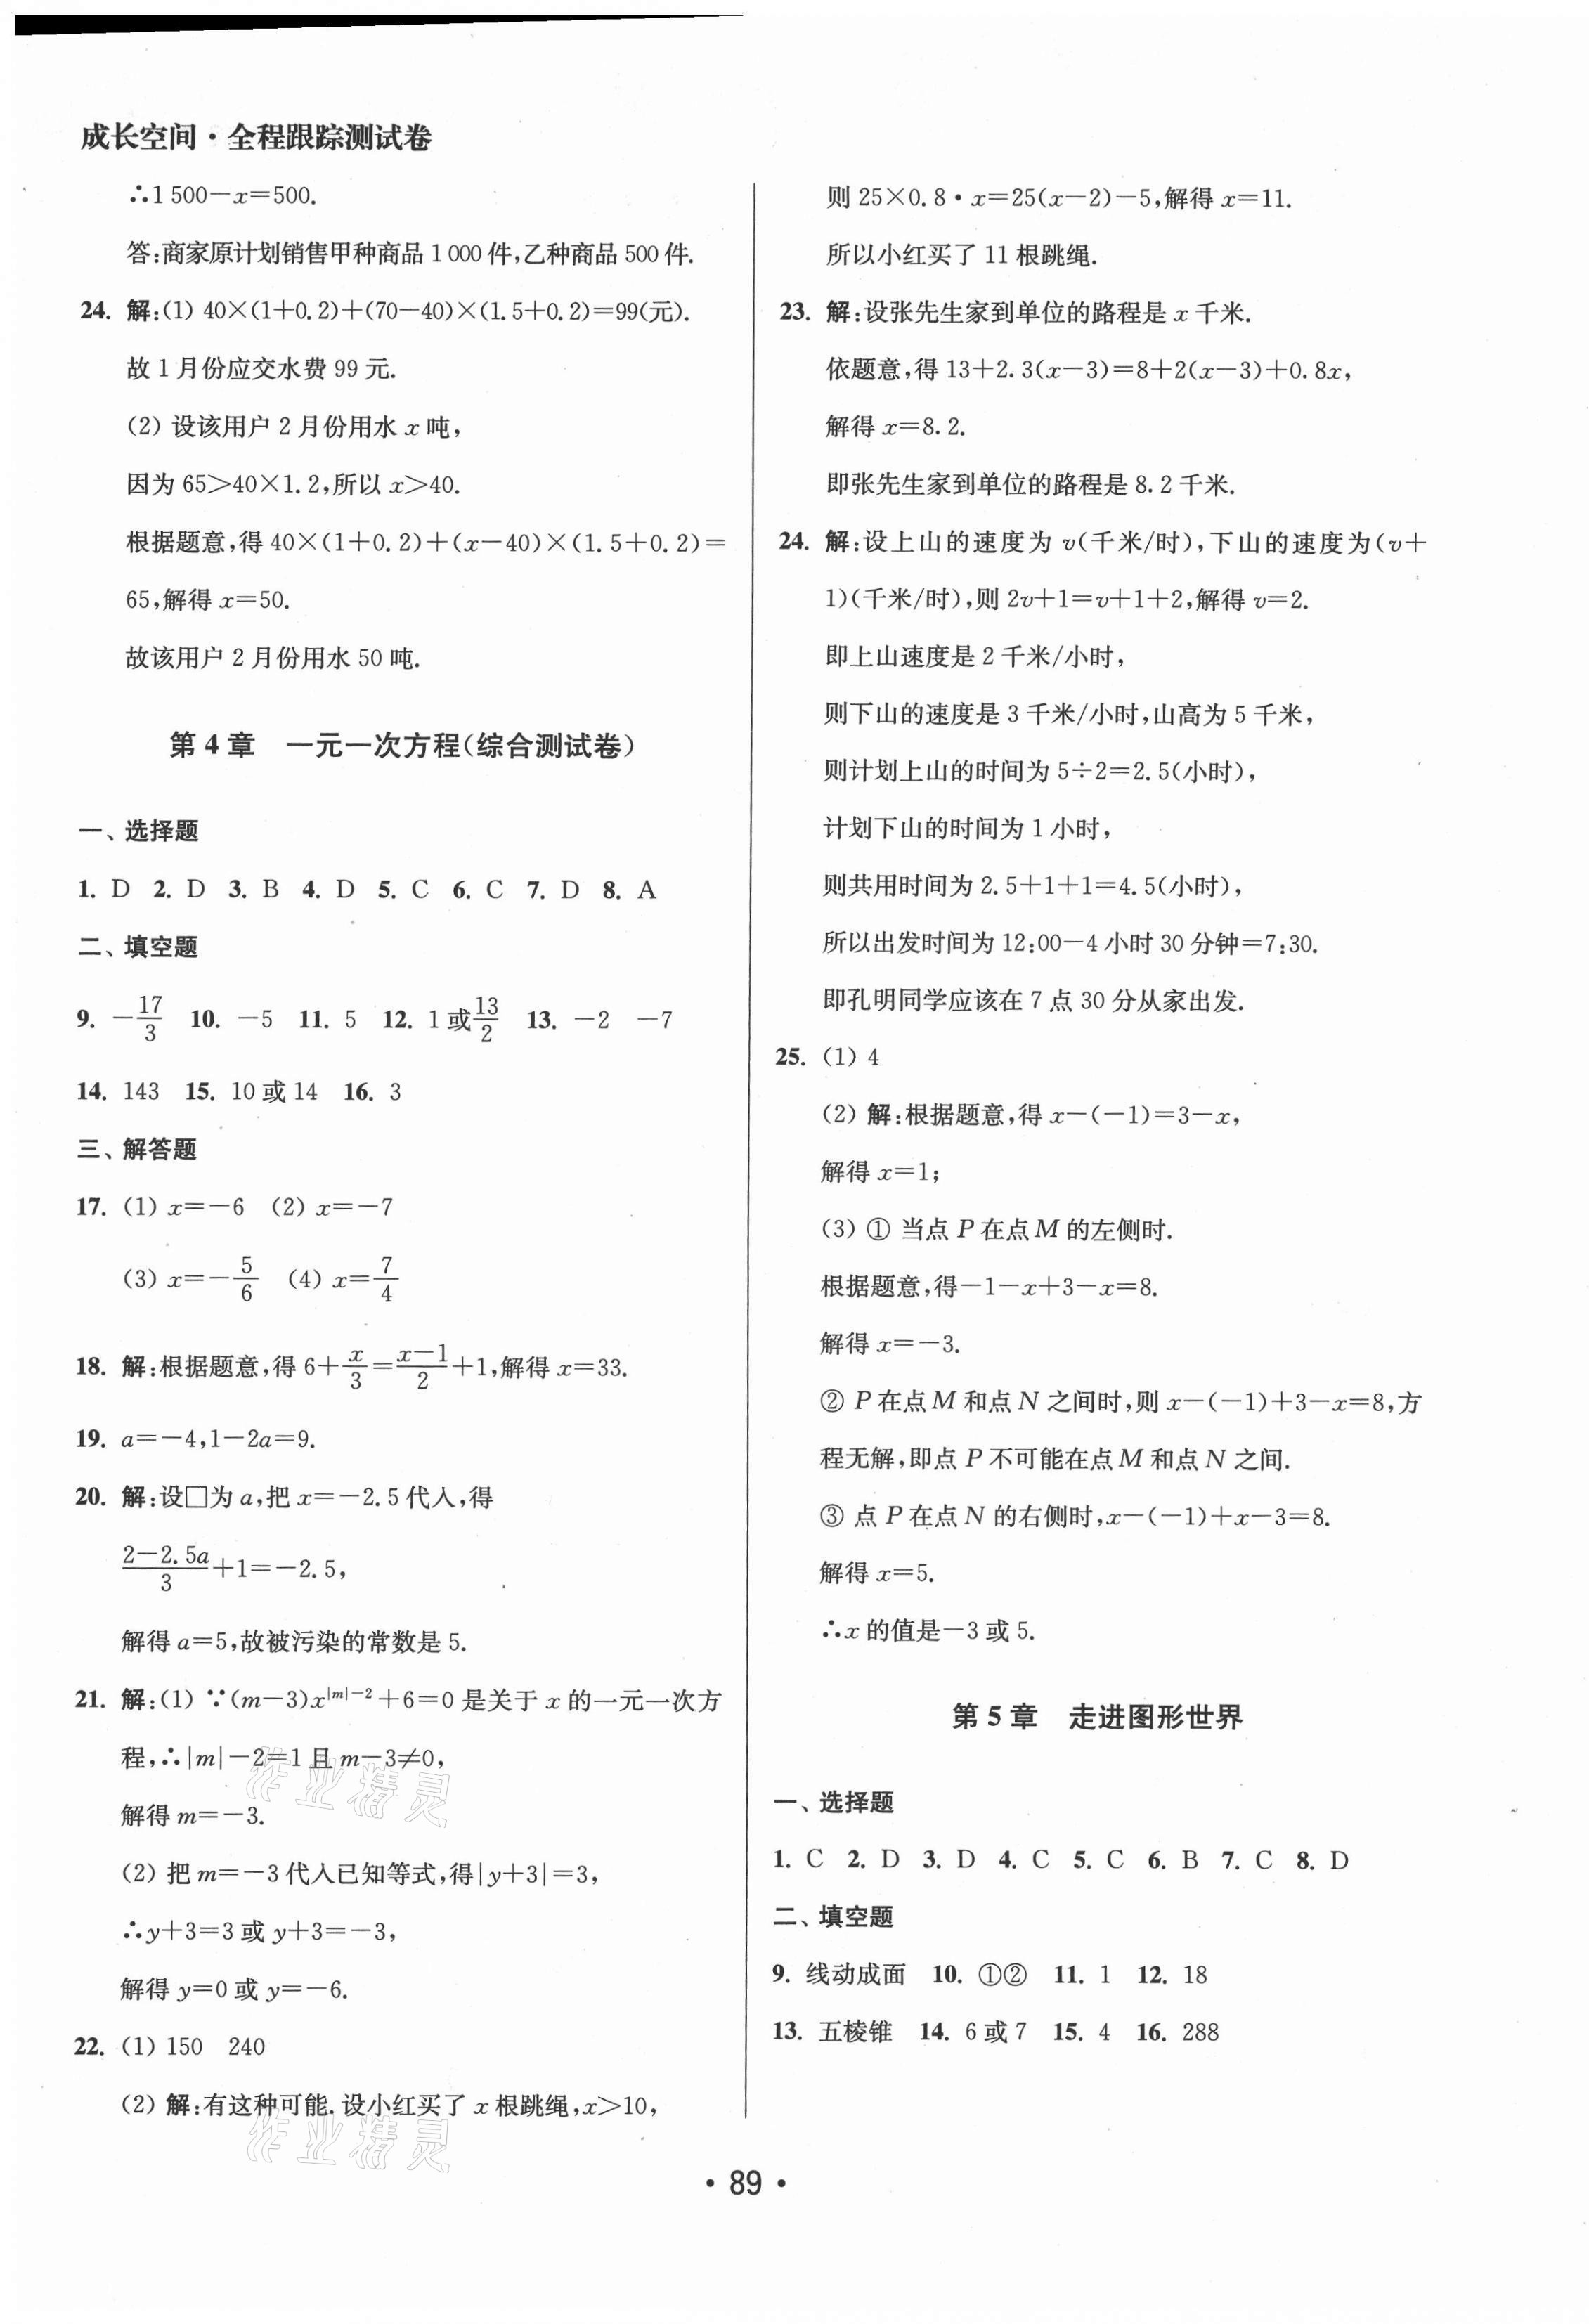 成长空间·全程跟踪测试卷
∴1 500－x＝500.
答:商家原计划销售甲种商品 1 000 件,乙种商品 500 件.
24. 解:(1) 40×(1＋0.2)＋(70－40)×(1.5＋0.2)＝99(元).
故 1 月份应交水费 99 元.
(2) 设该用户 2 月份用水 x 吨,
因为 65＞40×1.2,所以 x＞40.
根据题意,得 40×(1＋0.2)＋(x－40)×(1.5＋0.2)＝
65,解得 x＝50.
故该用户 2 月份用水 50 吨.
第 4 章　一元一次方程(综合测试卷)
一、选择题
1. D 2. D 3. B 4. D 5. C 6. C 7. D 8. A
二、填空题
9. －17/3 10. －5 11. 5 12. 1 或 13/2 13. －2 －7
14. 143 15. 10 或 14 16. 3
三、解答题
17. (1) x＝－6 (2) x＝－7
(3) x＝－5/6 (4) x＝7/4
18. 解:根据题意,得 6＋x/3＝(x－1)/2＋1,解得 x＝33.
19. a＝－4,1－2a＝9.
20. 解:设□为 a,把 x＝－2.5 代入,得
(2－2.5a)/3＋1＝－2.5,
解得 a＝5,故被污染的常数是 5.
21. 解:(1) ∵(m－3)x^{|m|－2}＋6＝0 是关于 x 的一元一次方
程,∴|m|－2＝1 且 m－3≠0,
解得 m＝－3.
(2) 把 m＝－3 代入已知等式,得|y＋3|＝3,
∴y＋3＝3 或 y＋3＝－3,
解得 y＝0 或 y＝－6.
22. (1) 150 240
(2) 解:有这种可能.设小红买了 x 根跳绳,x＞10,
则 25×0.8·x＝25(x－2)－5,解得 x＝11.
所以小红买了 11 根跳绳.
23. 解:设张先生家到单位的路程是 x 千米.
依题意,得 13＋2.3(x－3)＝8＋2(x－3)＋0.8x,
解得 x＝8.2.
即张先生家到单位的路程是 8.2 千米.
24. 解:设上山的速度为 v(千米/时),下山的速度为(v＋
1)(千米/时),则 2v＋1＝v＋1＋2,解得 v＝2.
即上山速度是 2 千米/小时,
则下山的速度是 3 千米/小时,山高为 5 千米,
则计划上山的时间为 5÷2＝2.5(小时),
计划下山的时间为 1 小时,
则共用时间为 2.5＋1＋1＝4.5(小时),
所以出发时间为 12:00－4 小时 30 分钟＝7:30.
即孔明同学应该在 7 点 30 分从家出发.
25. (1) 4
(2) 解:根据题意,得 x－(－1)＝3－x,
解得 x＝1;
(3) ① 当点 P 在点 M 的左侧时.
根据题意,得－1－x＋3－x＝8.
解得 x＝－3.
② P 在点 M 和点 N 之间时,则 x－(－1)＋3－x＝8,方
程无解,即点 P 不可能在点 M 和点 N 之间.
③ 点 P 在点 N 的右侧时,x－(－1)＋x－3＝8.
解得 x＝5.
∴x 的值是－3 或 5.
第 5 章　走进图形世界
一、选择题
1. C 2. D 3. D 4. C 5. C 6. B 7. C 8. D
二、填空题
9. 线动成面 10. ①② 11. 1 12. 18
13. 五棱锥 14. 6 或 7 15. 4 16. 288
作业精灵
作业精灵
·89·